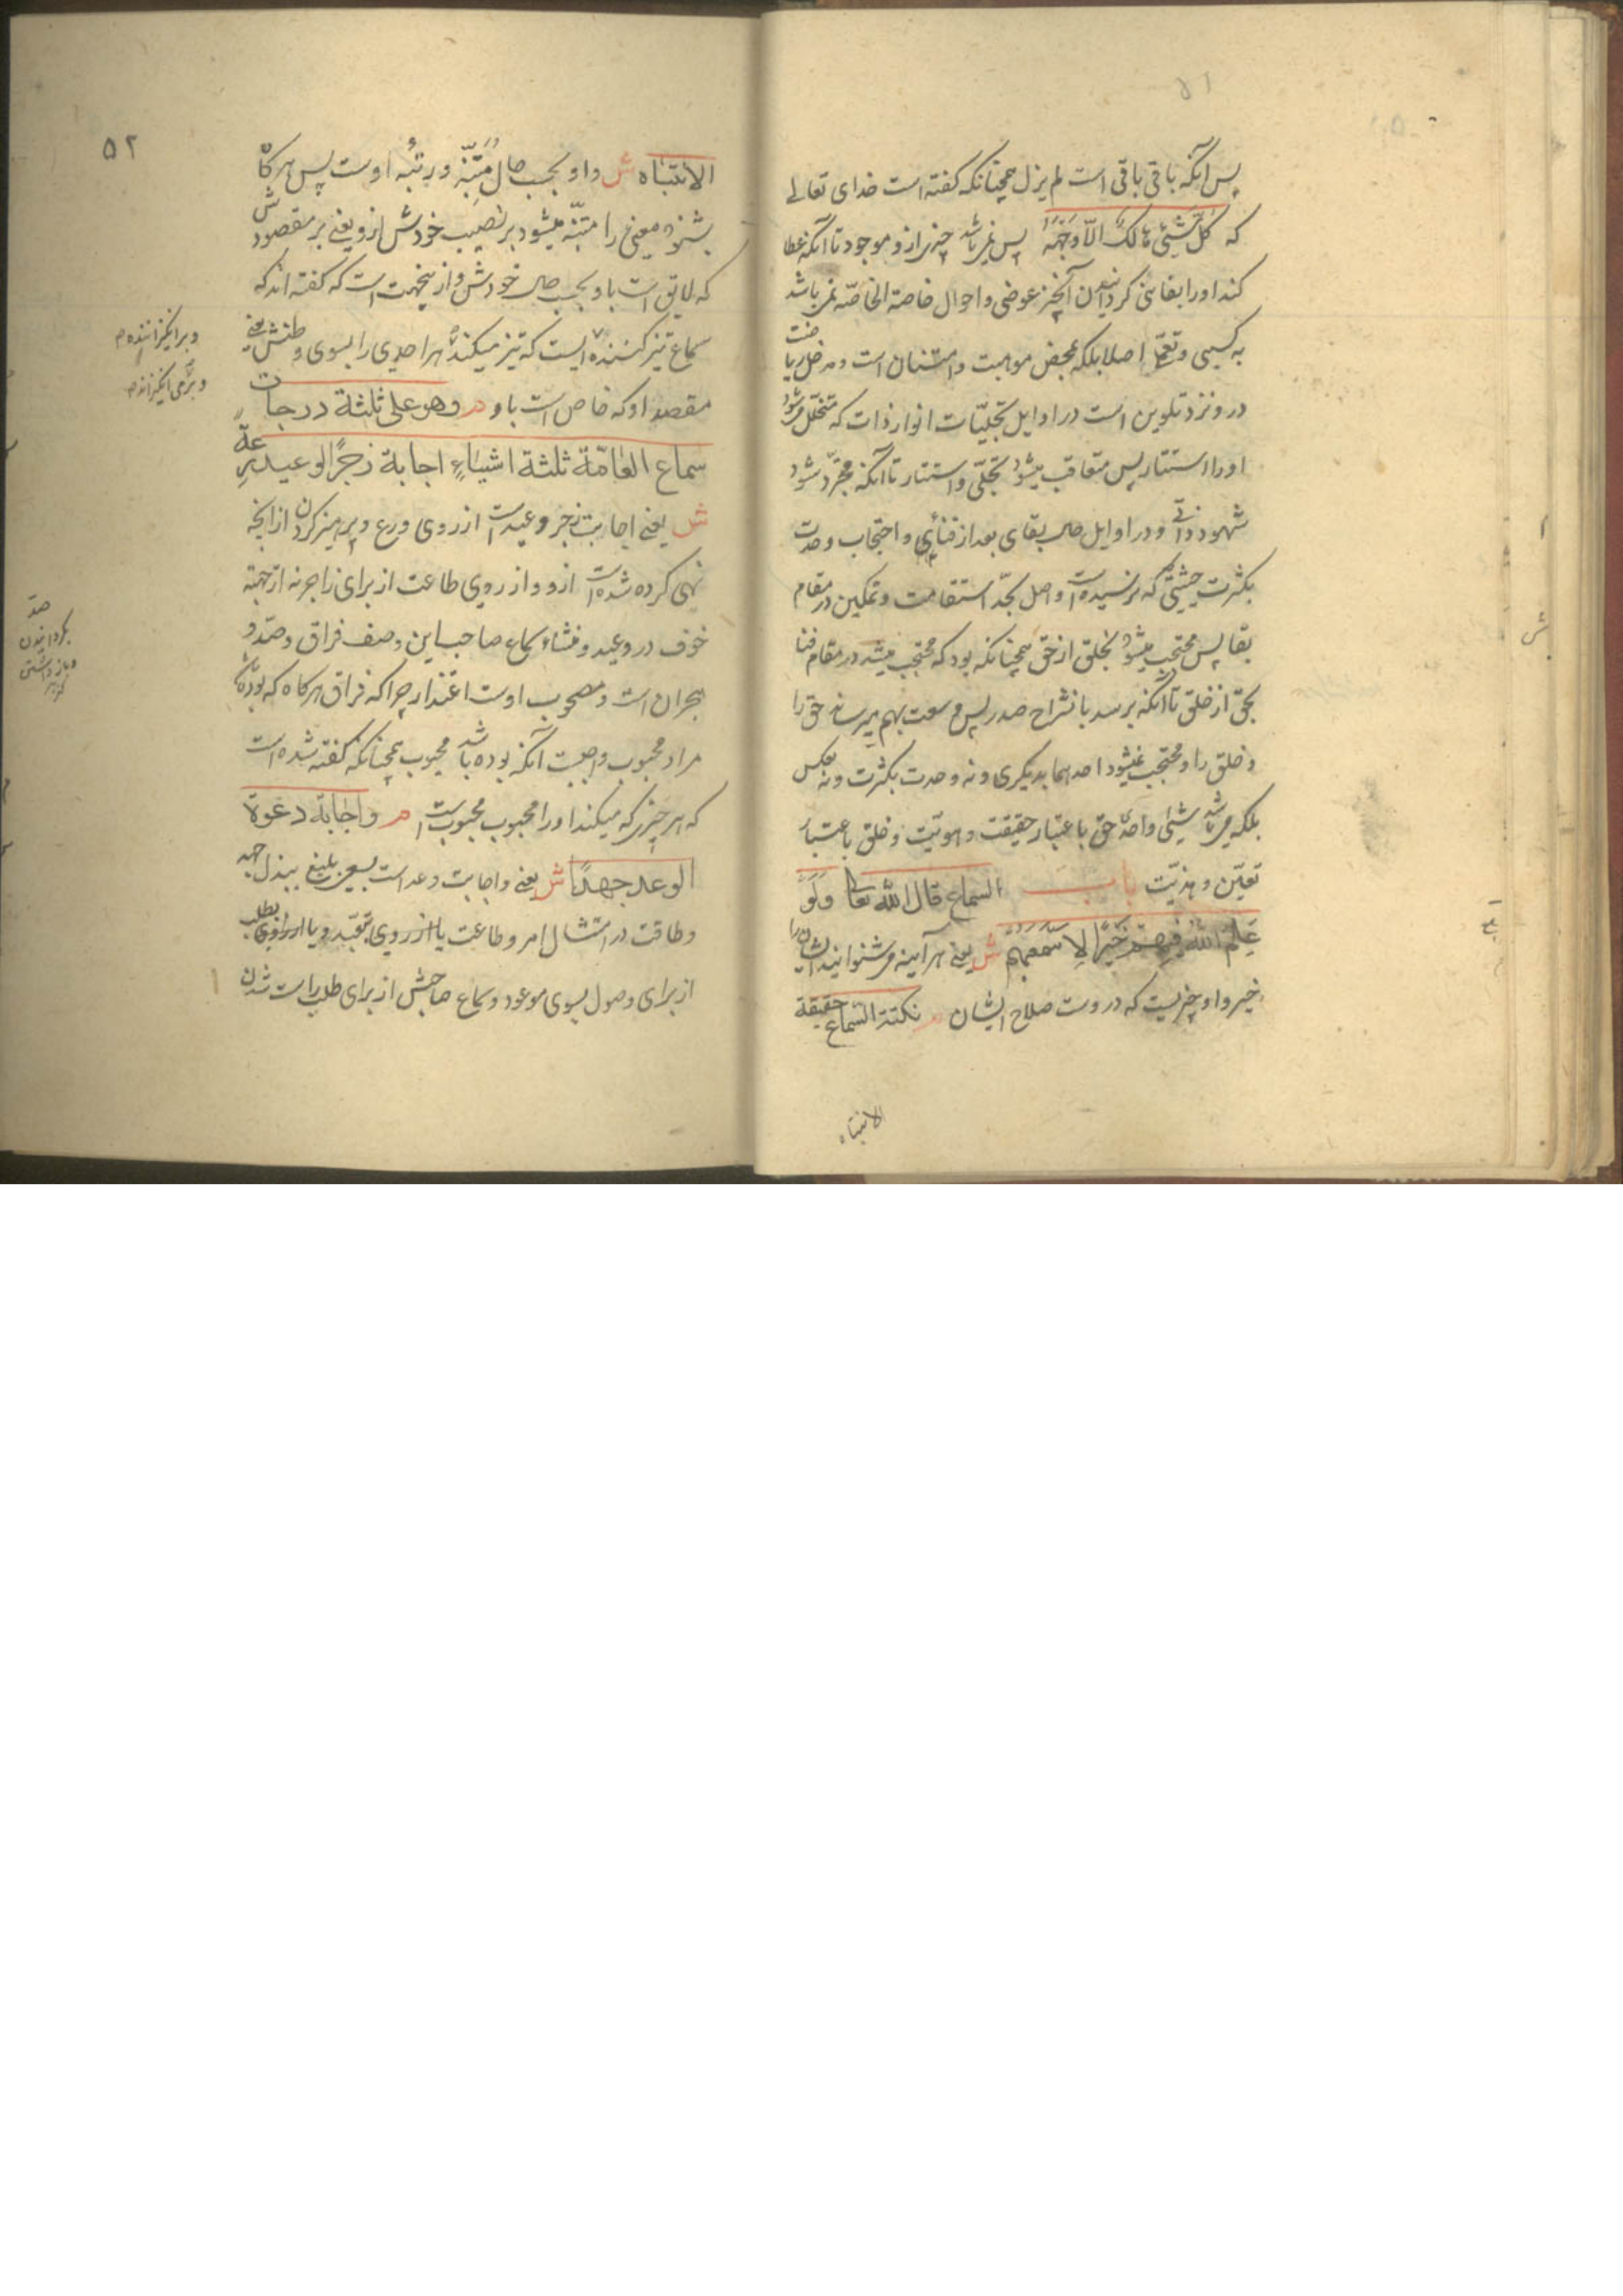 ۵۱
پس آنکه باقی باقی است لم یزل همچنانکه کفته است خدای تعالی
که کُلُّ شَیْئٍ هَالِکٌ اِلّا وَجْهَهُ پس نمیباشد چیزی ازو موجود تا آنکه عطا
کند او را بفانی کردانیدن آنچیز عوضی و احوال خاصة الخاصّه نمیباشد
به کسبی و تعمّل اصلا بلکه بمحض موهبت و امتنان است و مدخل ریاضت
درو نزد تلوین است در اوایل تجلیّات انوار ذات که متخلّل میشود
او را استتار پس متعاقب میشود تجلّی و استتار تا آنکه مجرّد شود
شهود ذاتی و در اوایل حال بقای بعد از فنائی و احتجاب وحدت
بکثرت حیثیتی که نرسیده است واصل بحدّ استقامت و تمکین در مقام
بقا پس محتجب میشود بخلق از حق همچنانکه بود که محتجب میشد در مقام فنا
بحق از خلق تا آنکه برسد بانشراح صدر پس وسعت بهم میرساند حق را
و خلق را و محتجب نمیشود احدهما بدیکری و نه وحدت بکثرت و نه بعکس
بلکه میباشد شیئی واحد حق باعتبار حقیقت و هویّت و خلق باعتبار
تعیّن و هذیّت باب السماع قال الله تعالی وَلَوْ
عَلِمَ اللّٰهُ فِیهِمْ خَیْرًا لَاَسْمَعَهُمْ ش یعنی هر آینه میشنوانید ایشان را
خیر و او چیزیست که دروست صلاح ایشان م نکتة السّماع حقیقة
الانتباه
۵۲
الانتباه ش و او بحسب حال مُتَنَبِّه و رتبه اوست پس هر کاه
بشنود معنی را متنبّه میشود بر نصیب خودش ازو یعنی بر مقصودش
که لایق است باو بحسب حال خودش و ازینجهت است که کفته اند که
سماع تیز کننده ایست که تیز میکند هر احدی را بسوی وطنش یعنی
مقصد او که خاص است باو م وهو علی ثلثة درجات
سماع العامّة ثلثة اشیاءٍ اجابة زجر الوعید رِعةً
ش یعنی اجابت زجر وعید است از روی ورع و پرهیز کردن از آنچه
نهی کرده شده است ازو و از روی طاعت از برای زاجر نه از جهة
خوف در وعید و منشاء سماع صاحب این وصف فراق و صدّ و
هجران است و مصحوب اوست اعتذار چرا که فراق هر کاه که بوده باشد
مراد محبوب واجبست آنکه بوده باشد محبوب همچنانکه کفته شده است
که هر چیز که میکند او را محبوب محبوب است م واجابة دعوة
الوعد جهدًا ش یعنی و اجابت وعد است بسعی بلیغ ببذل جهد
و طاقت در امتثال امر و طاعت یا از روی تعبّد و یا از روی طلب
از برای وصول بسوی موعود و سماع صاحبش از برای طلب راست شدن
و برانکیزاننده
و برمی انکیزاند
صدّ
بکردانیدن
و باز داشتن